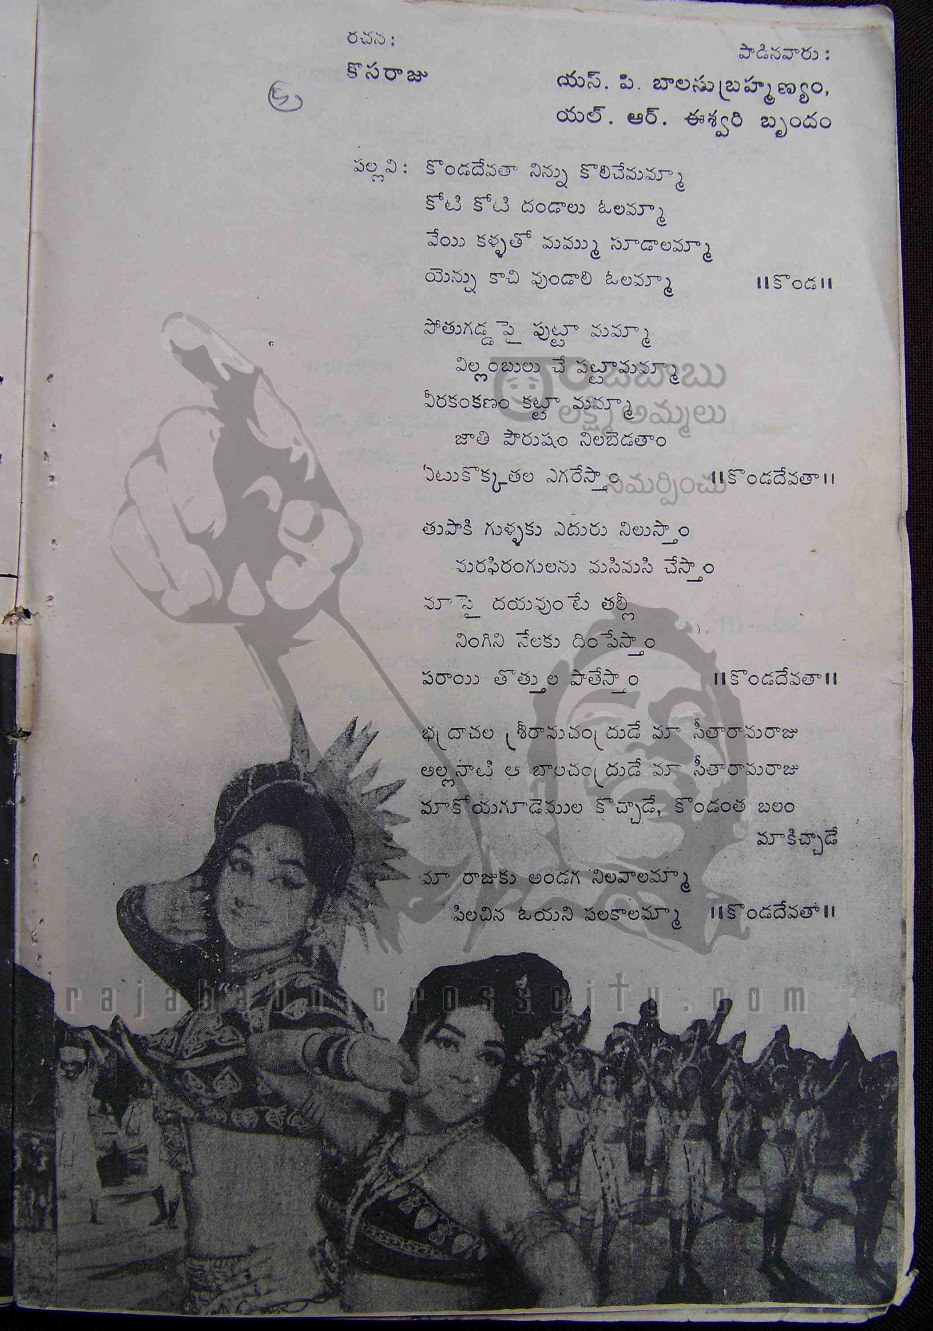 రచన:
కొసరాజు
పాడినవారు:
యస్. పి. బాలసుబ్రహ్మణ్యం,
యల్. ఆర్. ఈశ్వరి బృందం
పల్లవి: కొండదేవతా నిన్ను కొలిచేమమ్మా
కోటి కోటి దండాలు ఓలమ్మా
వేయి కళ్ళతో మమ్ము సూడాలమ్మా
యెన్ను కాచి వుండాలి ఓలమ్మా ॥కొండ॥
పోతుగడ్డ పై పుట్టా మమ్మా
విల్లంబులు చే పట్టామమ్మా
వీరకంకణం కట్టా మమ్మా
జాతి పౌరుషం నిలబెడతాం
ఏటుకొక్కతల ఎగరేస్తాం ॥కొండదేవతా॥
తుపాకి గుళ్ళకు ఎదురు నిలుస్తాం
మరఫిరంగులను మసిమసి చేస్తాం
మా పై దయవుంటే తల్లీ
నింగిని నేలకు దింపేస్తాం
పరాయి తొత్తుల పాతేస్తాం ॥కొండదేవతా॥
భద్రాచల శ్రీరామచంద్రుడే మా సీతారామరాజు
అల్లనాటి ఆ బాలచంద్రుడే మా సీతారామరాజు
మాకోయగూడెముల కొచ్చాడే, కొండంత బలం
మాకిచ్చాడే
మా రాజుకు అండగ నిలవాలమ్మా
పిలచిన ఓయని పలకాలమ్మా ॥కొండదేవతా॥
లక్ష్మి అమ్మలు
సమర్పించు
rajababu.crosscity.com